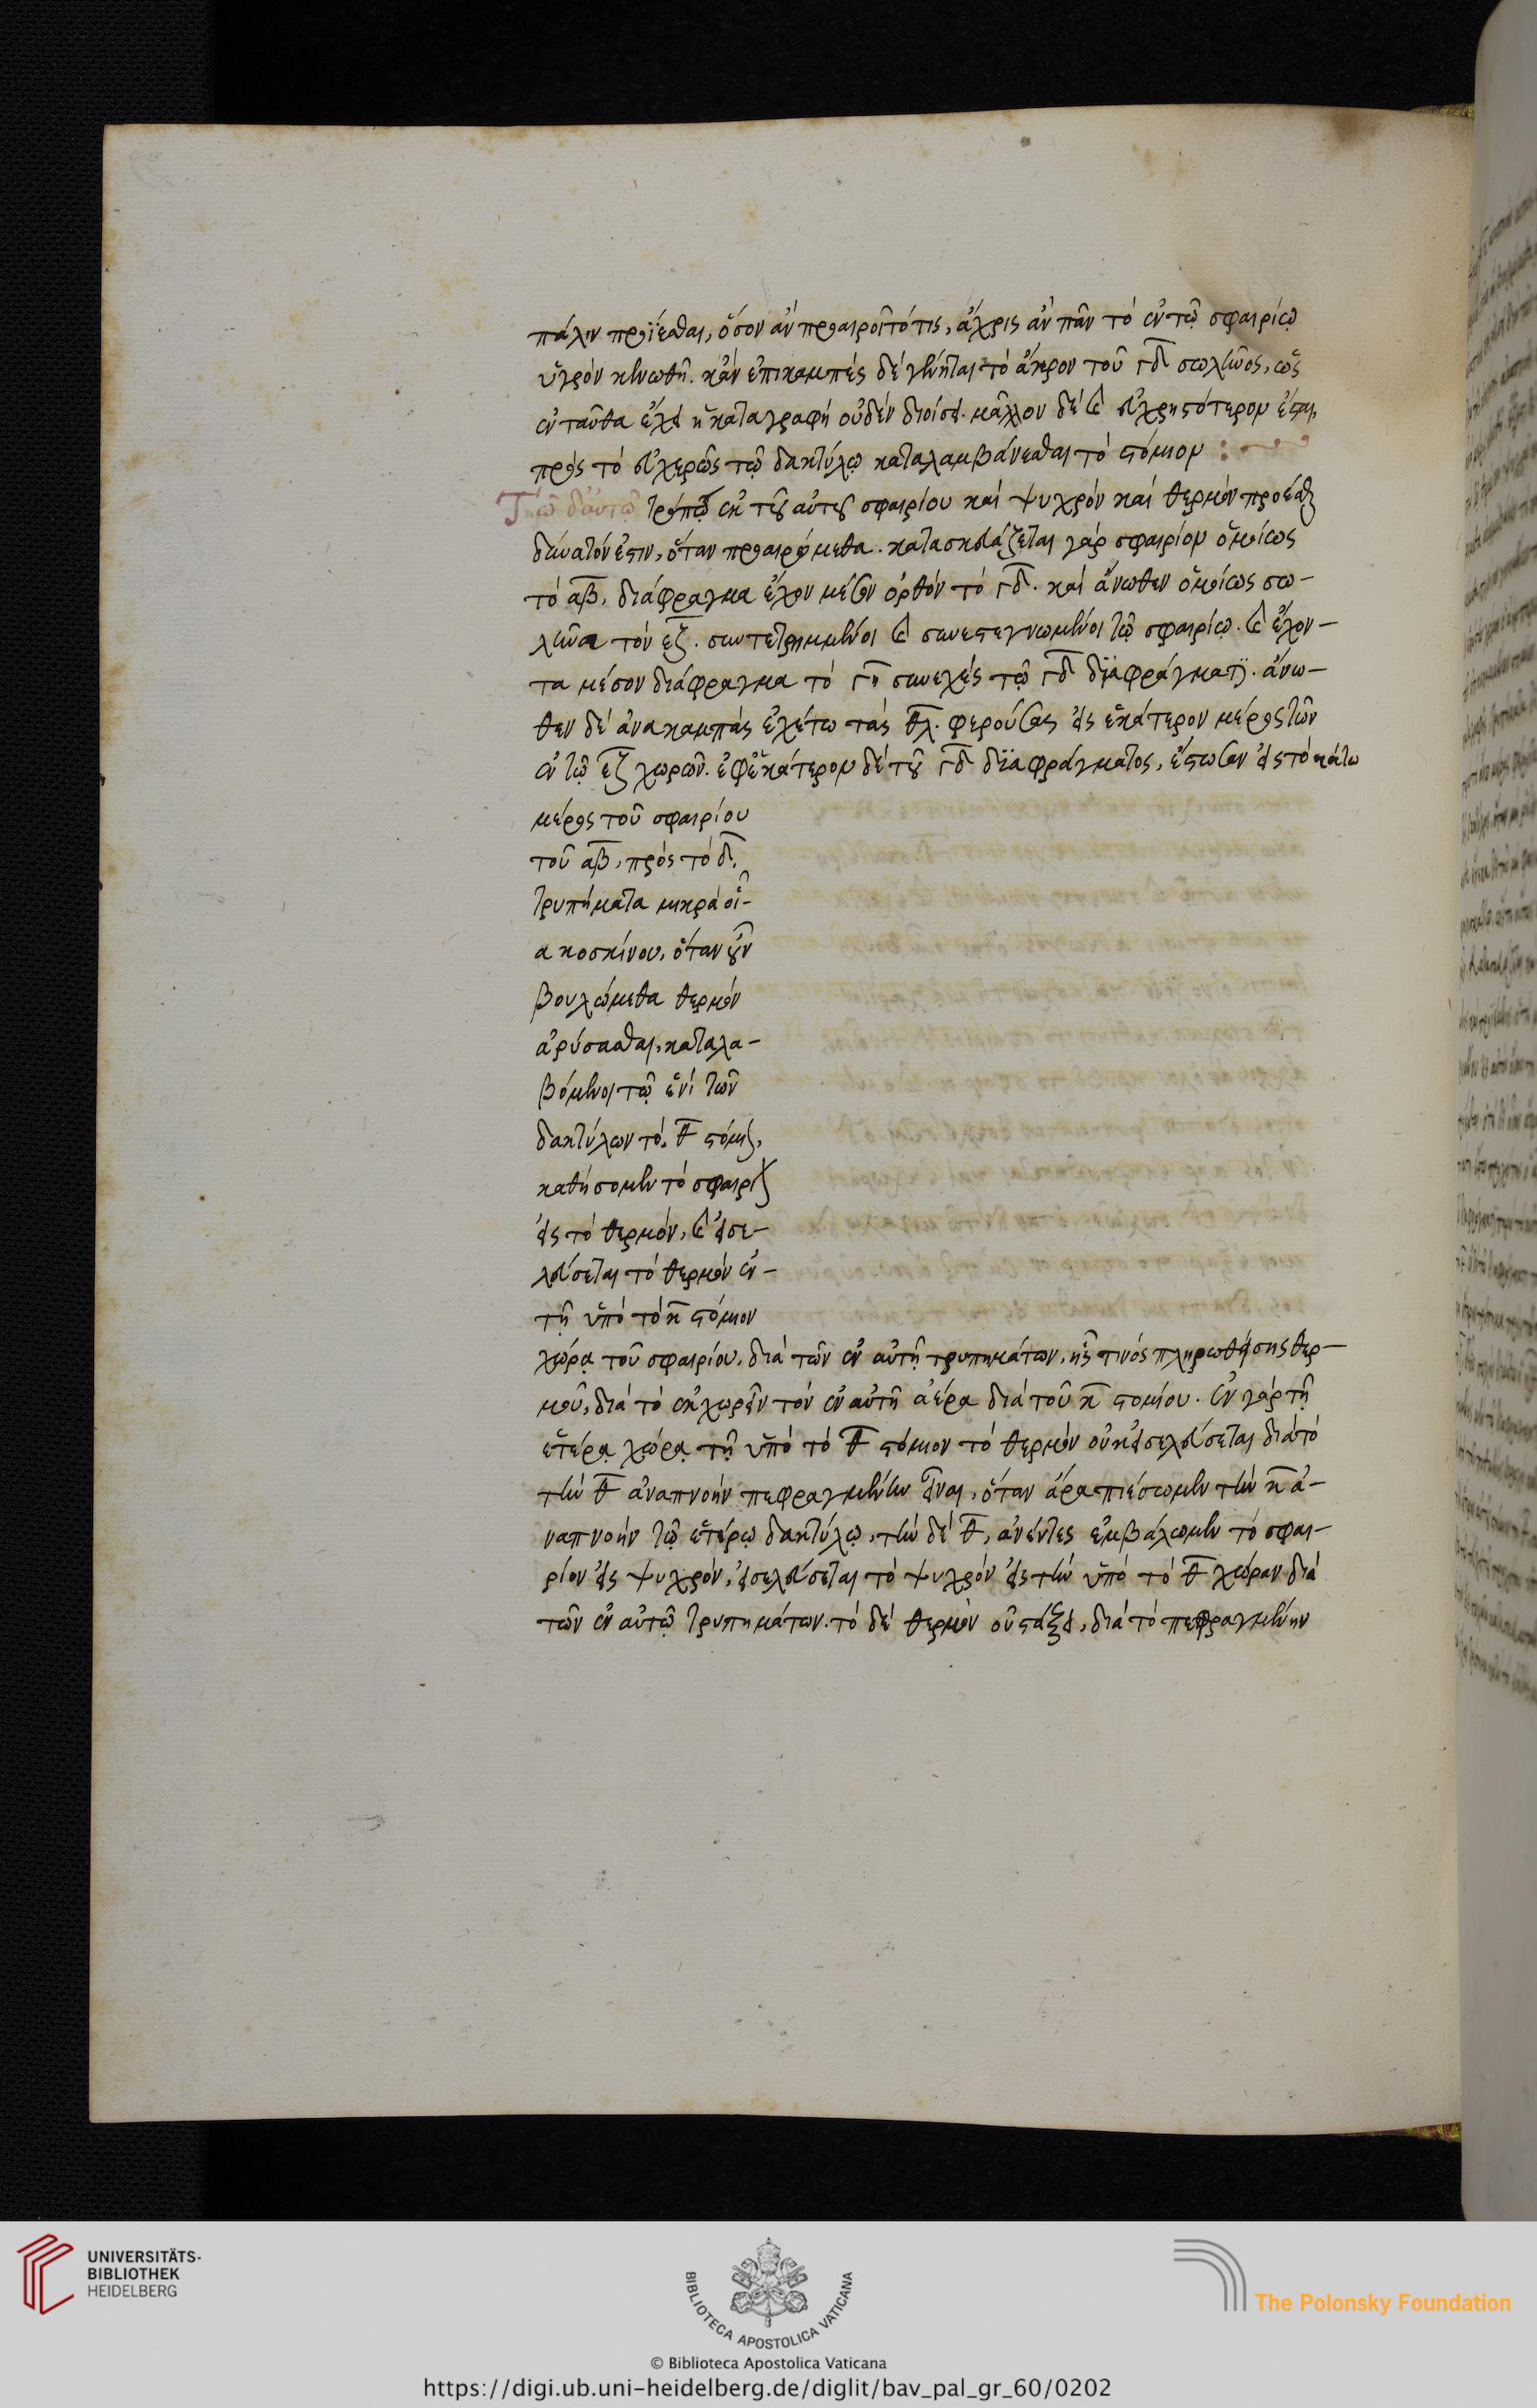 πάλιν προΐεσθαι, ὅσον ἂν προαιροῖτό τις, ἄχρις ἂν πᾶν τὸ ἐν τῷ σφαιρίῳ
ὑγρὸν κενωθῇ. κἂν ἐπικαμπὲς δὲ γένηται τὸ ἄκρον τοῦ γδ σωλῆνος, ὡς
ἐνταῦθα ἔχει ἡ καταγραφὴ οὐδὲν διοίσει. μᾶλλον δὲ καὶ εὐχρηστότερον ἔσται,
πρὸς τὸ εὐχερῶς τῷ δακτύλῳ καταλαμβάνεσθαι τὸ στόμιον :
Τῷ δ' αὐτῷ τρόπῳ ἐκ τοῦ αὐτοῦ σφαιρίου καὶ ψυχρὸν καὶ θερμὸν προέσθαι
δυνατόν ἐστιν, ὅταν προαιρώμεθα. κατασκευάζεται γὰρ σφαιρίον ὁμοίως
τὸ αβ, διάφραγμα ἔχον μέσον ὀρθὸν τὸ γδ. καὶ ἄνωθεν ὁμοίως σω-
λῆνα τὸν εζ. συντετρημμένοι καὶ συνεστεγνωμένοι τῷ σφαιρίῳ. καὶ ἔχον-
τα μέσον διάφραγμα τὸ γη συνεχὲς τῷ γδ διαφράγματι. ἄνω-
θεν δὲ ἀνακαμπὰς ἐχέτω τὰς θλ. φερούσας εἰς ἑκάτερον μέρος τῶν
ἐν τῷ εζ χωρῶν. ἐφ' ἑκάτερον δὲ τοῦ γδ διαφράγματος, ἔστωσαν εἰς τὸ κάτω
μέρος τοῦ σφαιρίου
τοῦ αβ, πρὸς τὸ δ.
τρυπήματα μικρὰ οἷ-
α κοσκίνου, ὅταν οὖν
βουλώμεθα θερμὸν
ἀρύσασθαι, καταλα-
βόμενοι τῷ ἑνὶ τῶν
δακτύλων τὸ θ στόμιον,
καθήσομεν τὸ σφαιρίον
εἰς τὸ θερμόν, καὶ εἰσε-
λεύσεται τὸ θερμὸν ἐν
τῇ ὑπὸ τὸ κ στόμιον
χώρᾳ τοῦ σφαιρίου, διὰ τῶν ἐν αὐτῇ τρυπημάτων, ἧς τινὸς πληρωθείσης θερ-
μοῦ, διὰ τὸ ἐκχωρεῖν τὸν ἐν αὐτῇ ἀέρα διὰ τοῦ κ στομίου. ἐν γὰρ τῇ
ἑτέρᾳ χώρᾳ τῇ ὑπὸ τὸ θ στόμιον τὸ θερμὸν οὐκ εἰσελεύσεται διὰ τὸ
τὴν θ ἀναπνοὴν πεφραγμένην εἶναι, ὅταν ἄρα πιέσωμεν τὴν κ ἀ-
ναπνοὴν τῷ ἑτέρῳ δακτύλῳ, τὴν δὲ θ, ἀνέντες ἐμβάλωμεν τὸ σφαι-
ρίον εἰς ψυχρόν, εἰσελεύσεται τὸ ψυχρὸν εἰς τὴν ὑπὸ τὸ θ χώραν διὰ
τῶν ἐν αὐτῷ τρυπημάτων. τὸ δὲ θερμὸν οὐ στάξει, διὰ τὸ πεφραγμένην
UNIVERSITÄTS-
BIBLIOTHEK
HEIDELBERG
BIBLIOTECA APOSTOLICA VATICANA
The Polonsky Foundation
© Biblioteca Apostolica Vaticana
https://digi.ub.uni-heidelberg.de/diglit/bav_pal_gr_60/0202